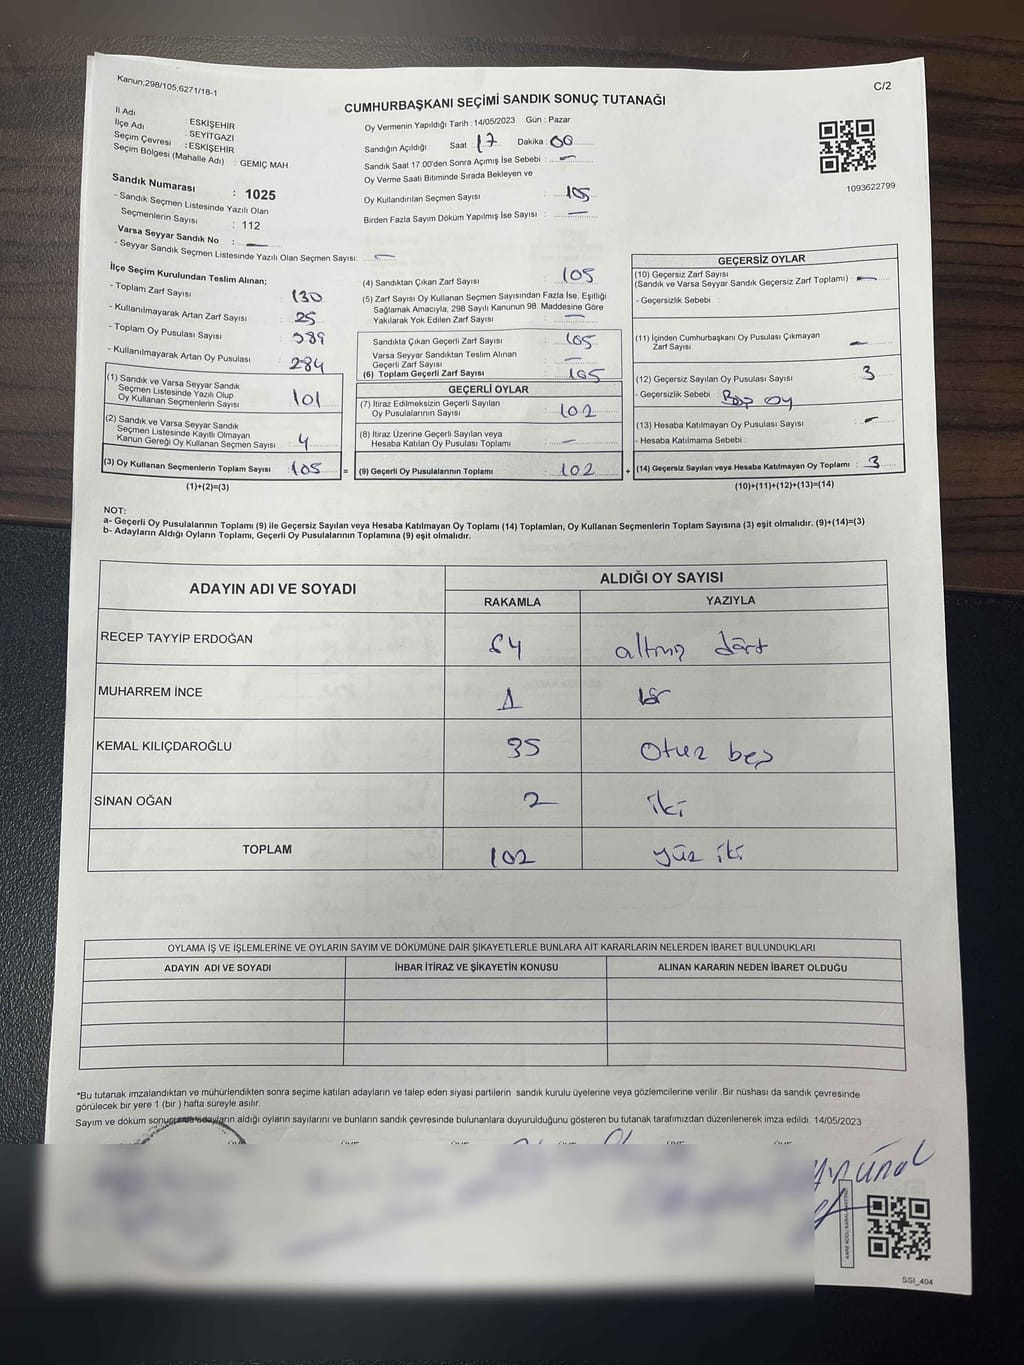 Kanun;298/105,6271/18-1
C/2
CUMHURBAŞKANI SEÇİMİ SANDIK SONUÇ TUTANAĞI
İl Adı : ESKİŞEHİR
İlçe Adı : SEYİTGAZİ
Seçim Çevresi : ESKİŞEHİR
Seçim Bölgesi (Mahalle Adı) : GEMİÇ MAH
Sandık Numarası : 1025
- Sandık Seçmen Listesinde Yazılı Olan
Seçmenlerin Sayısı : 112
Varsa Seyyar Sandık No : —
- Seyyar Sandık Seçmen Listesinde Yazılı Olan Seçmen Sayısı: —
Oy Vermenin Yapıldığı Tarih : 14/05/2023 Gün : Pazar
Sandığın Açıldığı Saat 17 Dakika : 00
Sandık Saat 17.00'den Sonra Açımış İse Sebebi : —
Oy Verme Saati Bitiminde Sırada Bekleyen ve
Oy Kullandırılan Seçmen Sayısı : 105
Birden Fazla Sayım Döküm Yapılmış İse Sayısı : —
1093622799
İlçe Seçim Kurulundan Teslim Alınan;
- Toplam Zarf Sayısı : 130
- Kullanılmayarak Artan Zarf Sayısı : 25
- Toplam Oy Pusulası Sayısı : 389
- Kullanılmayarak Artan Oy Pusulası : 284
(1) Sandık ve Varsa Seyyar Sandık
Seçmen Listesinde Yazılı Olup
Oy Kullanan Seçmenlerin Sayısı : 101
(2) Sandık ve Varsa Seyyar Sandık
Seçmen Listesinde Kayıtlı Olmayan
Kanun Gereği Oy Kullanan Seçmen Sayısı : 4
(3) Oy Kullanan Seçmenlerin Toplam Sayısı : 105 =
(1)+(2)=(3)
(4) Sandıktan Çıkan Zarf Sayısı : 105
(5) Zarf Sayısı Oy Kullanan Seçmen Sayısından Fazla İse, Eşitliği
Sağlamak Amacıyla, 298 Sayılı Kanunun 98. Maddesine Göre
Yakılarak Yok Edilen Zarf Sayısı : —
Sandıkta Çıkan Geçerli Zarf Sayısı : 105
Varsa Seyyar Sandıktan Teslim Alınan
Geçerli Zarf Sayısı : —
(6) Toplam Geçerli Zarf Sayısı : 105
GEÇERLİ OYLAR
(7) İtiraz Edilmeksizin Geçerli Sayılan
Oy Pusulalarının Sayısı : 102
(8) İtiraz Üzerine Geçerli Sayılan veya
Hesaba Katılan Oy Pusulası Toplamı : —
(9) Geçerli Oy Pusulalarının Toplamı : 102 +
GEÇERSİZ OYLAR
(10) Geçersiz Zarf Sayısı
(Sandık ve Varsa Seyyar Sandık Geçersiz Zarf Toplamı) : —
- Geçersizlik Sebebi :
(11) İçinden Cumhurbaşkanı Oy Pusulası Çıkmayan
Zarf Sayısı : —
(12) Geçersiz Sayılan Oy Pusulası Sayısı : 3
- Geçersizlik Sebebi : Boş oy
(13) Hesaba Katılmayan Oy Pusulası Sayısı : —
- Hesaba Katılmama Sebebi :
(14) Geçersiz Sayılan veya Hesaba Katılmayan Oy Toplamı : 3
(10)+(11)+(12)+(13)=(14)
NOT:
a- Geçerli Oy Pusulalarının Toplamı (9) ile Geçersiz Sayılan veya Hesaba Katılmayan Oy Toplamı (14) Toplamları, Oy Kullanan Seçmenlerin Toplam Sayısına (3) eşit olmalıdır. (9)+(14)=(3)
b- Adayların Aldığı Oyların Toplamı, Geçerli Oy Pusulalarının Toplamına (9) eşit olmalıdır.
ADAYIN ADI VE SOYADI ALDIĞI OY SAYISI
RAKAMLA YAZIYLA
RECEP TAYYİP ERDOĞAN 64 altmış dört
MUHARREM İNCE 1 bir
KEMAL KILIÇDAROĞLU 35 otuz beş
SİNAN OĞAN 2 iki
TOPLAM 102 yüz iki
OYLAMA İŞ VE İŞLEMLERİNE VE OYLARIN SAYIM VE DÖKÜMÜNE DAİR ŞİKAYETLERLE BUNLARA AİT KARARLARIN NELERDEN İBARET BULUNDUKLARI
ADAYIN ADI VE SOYADI İHBAR İTİRAZ VE ŞİKAYETİN KONUSU ALINAN KARARIN NEDEN İBARET OLDUĞU
*Bu tutanak imzalandıktan ve mühürlendikten sonra seçime katılan adayların ve talep eden siyasi partilerin sandık kurulu üyelerine veya gözlemcilerine verilir. Bir nüshası da sandık çevresinde
görülecek bir yere 1 (bir ) hafta süreyle asılır.
Sayım ve döküm sonucunda adayların aldığı oyların sayılarını ve bunların sandık çevresinde bulunanlara duyurulduğunu gösteren bu tutanak tarafımızdan düzenlenerek imza edildi. 14/05/2023
SSI_404